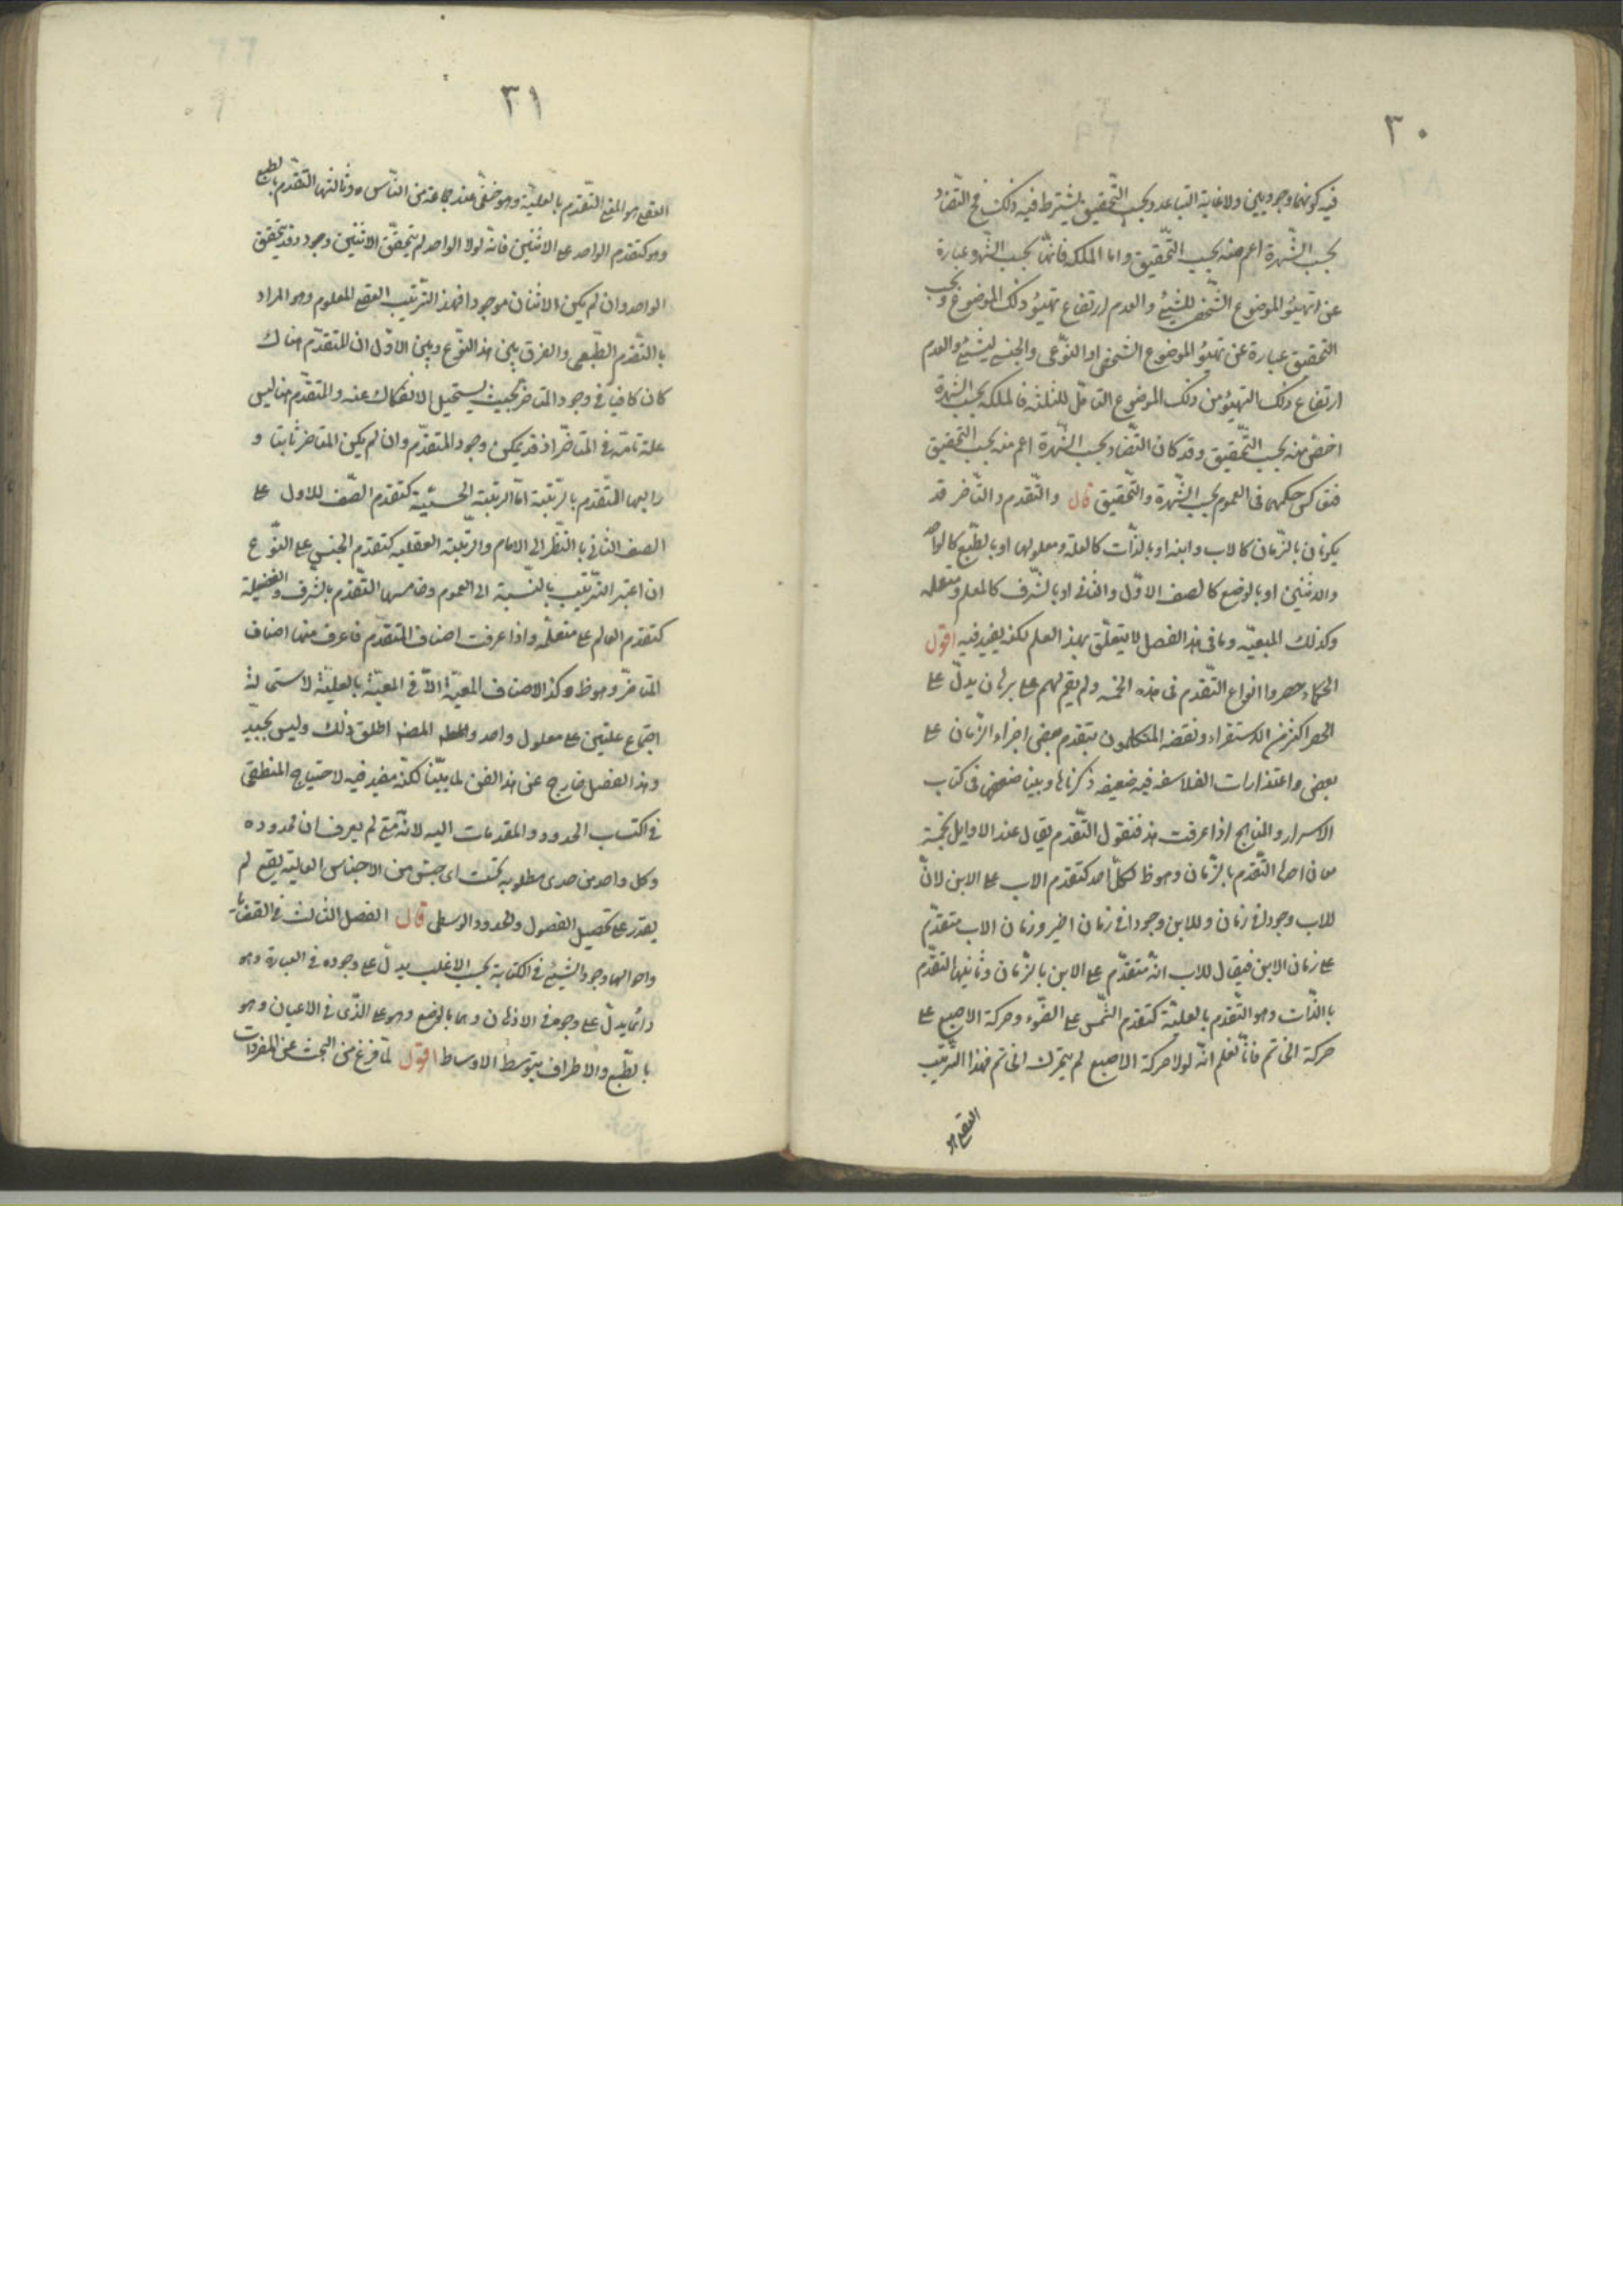 ٣٠
فيه كونهما وجوديين ولا غاية التباعد وبحسب التّحقيق يشترط فيه ذلك فح التّضاد
بحسب الشّهرة اعم منه بحسب التّحقيق واما الملكه فانّها بحسب الشهره عبارة
عن تهيئو الموضوع الشّخصى للشيئ والعدم ارتفاع تهيئو ذلك الموضوع وبحسب
التحقيق عبارة عن تهيئو الموضوع الشخصى او النّوعى والجنسى لشيئ والعدم
ارتفاع ذلك التهيئو من ذلك الموضوع القابل للثلثه فالملكه بحسب الشهرة
اخصّ منه بحسب التّحقيق وقد كان التّضاد بحسب الشّهرة اعم منه بحسب التحقيق
فتعاكس حكمهما فى العموم بحسب الشّهرة والتّحقيق قال والتّقدم والتّأخر قد
يكونان بالزّمان كالاب وابنه او بالذّات كالعلة ومعلولها او بالطّبع كالواحد
والاثنين او بالوضع كالصف الاوّل والثانى او بالشّرف كالمعلم ومتعلمه
وكذلك المعيّه وما فى هذا الفصل لا يتعلّق بهذا العلم لكنه يفيد فيه اقول
الحكماء حصروا انواع التّقدم فى هذه الخمسه ولم يقم لهم على برهان يدلّ على
الحصر اكثر من الاستقراء ونقضه المتكلمون بتقدم بعض اجزاء الزّمان على
بعض واعتذارات الفلاسفه فيه ضعيفه ذكرناها وبينا ضعفها فى كتاب
الاسرار والمناهج اذا عرفت هذا فنقول التّقدم يقال عند الاوايل بخمسة
معان احدها التّقدم بالزّمان وهو ظ لكلّ احد كتقدم الاب على الابن لانّ
للاب وجودا فى زمان وللابن وجودا فى زمان اخير وزمان الاب متقدّم
على زمان الابن فيقال للاب انّه متقدّم على الابن بالزّمان وثانيها التقدّم
بالذّات وهو التّقدم بالعليّة كتقدم الشّمس على الضّوء وحركة الاصبع على
حركة الخاتم فانّا نعلم انّه لولا حركة الاصبع لم يتحرك الخاتم فهذا التّرتيب
العقلى هو
٣١
العقلى هو المعنى التّقدم بالعليّة وهو خفىّ عند جماعة من النّاس وثالثها التّقدم بالطبع
وهو كتقدم الواحد على الاثنين فانّه لولا الواحد لم يتحقّق الاثنين وجود وقد يتحقق
الواحد وان لم يكن الاثنان موجودا فهذا التّرتيب العقلى المعلوم وهو المراد
بالتّقدّم الطّبيعى والفرق بين هذا النّوع وبين الاوّل ان المتقدّم هناك
كان كافيا فى وجود المتاخر بحيث يستحيل الانفكاك عنه والمتقدّم هنا ليس
علة تامّة فى المتاخّر اذ قد يمكن وجود المتقدّم وان لم يكن المتاخر ثابتا و
رابعها المتّقدم بالرّتبة امّا الرتبة الحسّيّة كتقدّم الصّف للاول على
الصف الثانى بالنّظر الى الامام والرّتبة العقليه كتقدّم الجنس على النّوع
ان اعتبر التّرتيب بالنّسبة الى العموم وخامسها التّقدّم بالشّرف والفضيلة
كتقدّم العالم على متعلّمه واذا عرفت اصناف المتقدّم فاعرف منها اصناف
المتاخّر وهو ظ وكذا الاصناف المعيّة الاّ فى المعيّة بالعليّة لاستحالة
اجتماع علتين على معلول واحد والمصنف اطلق ذلك وليس بجيّد
وهذا الفصل خارج عن هذا الفن لما بيّنا لكنّه مفيد فيه لاحتياج المنطقى
فى اكتساب الحدود والمقدمات اليه لانّه متى لم يعرف ان محدوده
وكل واحد من حدى مطلوبه تحت اى جنس من الاجناس العالية يقع لم
يقدر على تحصيل الفصول والحدود الوسطى قال الفصل الثالث فى القضايا
واحوالها وجود الشيئ فى الكتابة بحسب الاغلب يدلّ على وجوده فى العبارة وهو
دائما يدلّ على وجوده فى الاذهان وهما بالوضع وهو على الّذى فى الاعيان وهو
بالطّبع والاطراف بتوسّط الاوساط اقول لمّا فرغ من البحث عن المفردات